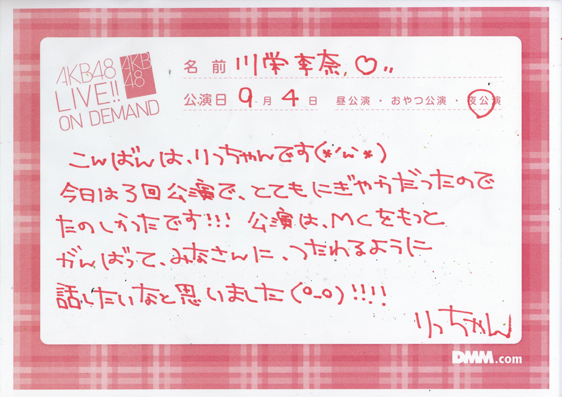 AKB48
LIVE!!
ON DEMAND
AKB
48
名前 川栄李奈,♡‥
公演日 9月4日 昼公演・おやつ公演・夜公演
こんばんは、りっちゃんです(*'ω'*)
今日は3回公演で、とてもにぎやかだったので
たのしかったです!!! 公演は、MCをもっと
がんばって、みなさんに、つたわるように
話したいなと思いました(o_o)!!!!
りっちゃん
DMM.com